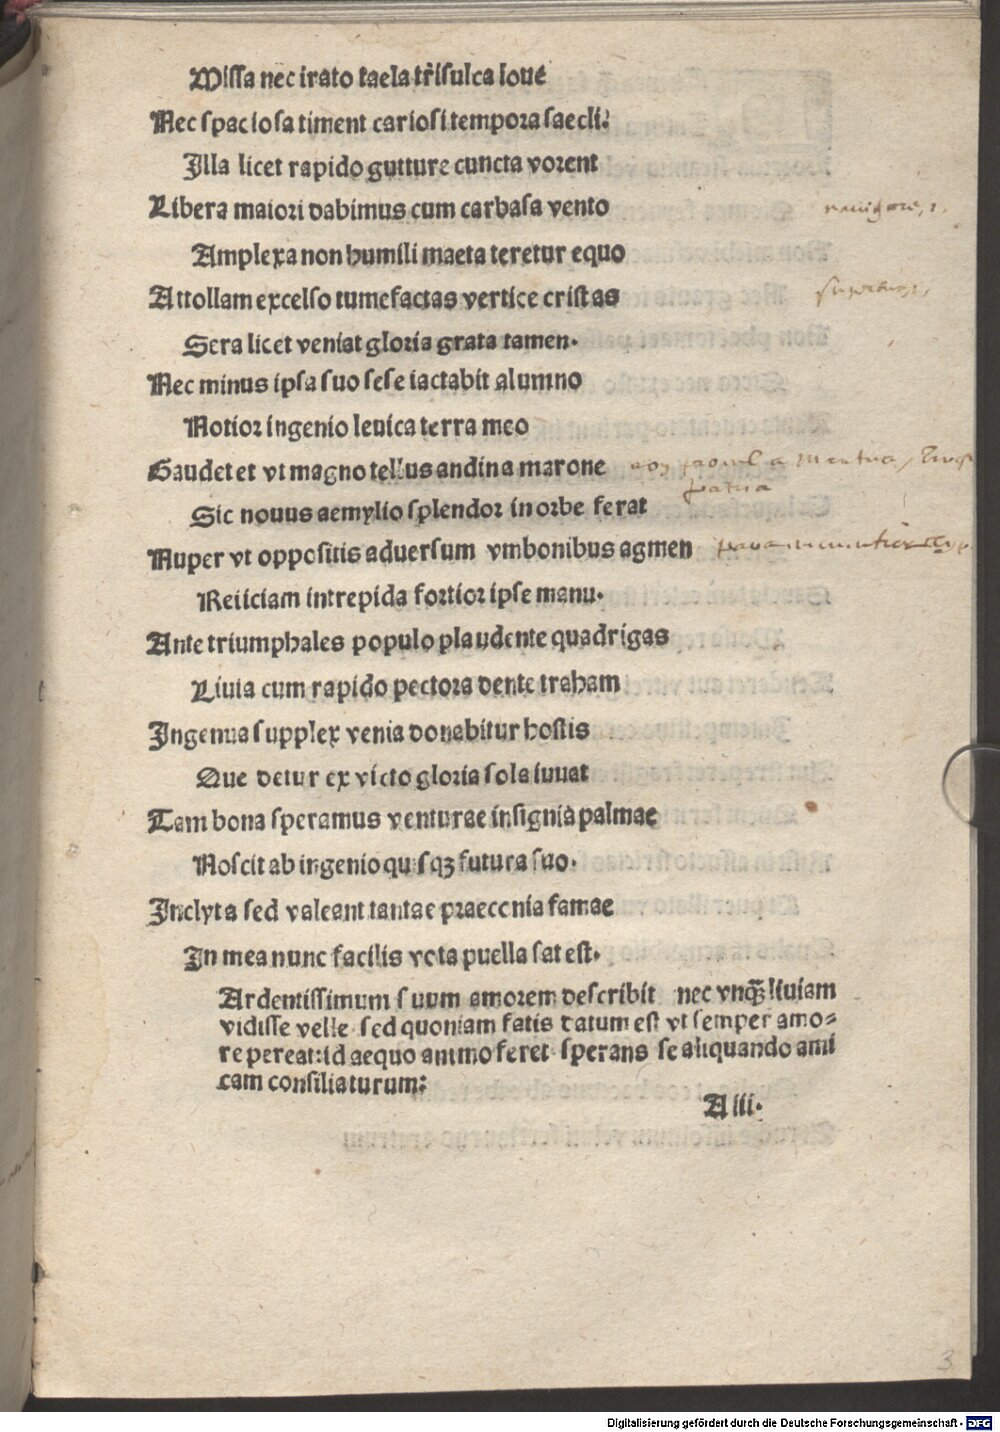 Missa nec irato taela trisulca Ioue
Nec spaciosa timent cariosi tempora saecli:
Illa licet rapido gutture cuncta vorent
Libera maiori dabimus cum carbasa vento
Amplexa non humili maeta teretur equo
Attollam excelso tumefactas vertice cristas
Sera licet veniat gloria grata tamen.
Nec minus ipsa suo sese iactabit alumno
Notior ingenio leuica terra meo
Gaudet et vt magno tellus andina marone
Sic nouus aemylio splendor in orbe ferat
Nuper vt oppositis aduersum vmbonibus agmen
Reiiciam intrepida fortior ipse manu.
Ante triumphales populo plaudente quadrigas
Liuia cum rapido pectora dente traham
Ingenua supplex venia donabitur hostis
Que detur ex victo gloria sola iuuat
Tam bona speramus venturae insignia palmae
Noscit ab ingenio quisqꝫ futura suo.
Inclyta sed valeant tantae praeconia famae
In mea nunc facilis vota puella sat est.
Ardentissimum suum amorem describit nec vnqꝫ liuiam
vidisse velle sed quoniam fatis datum est vt semper amo-
re pereat: id aequo animo feret sperans se aliquando ami
cam consiliaturum:
A iii.
patria
3
Digitalisierung gefördert durch die Deutsche Forschungsgemeinschaft - DFG